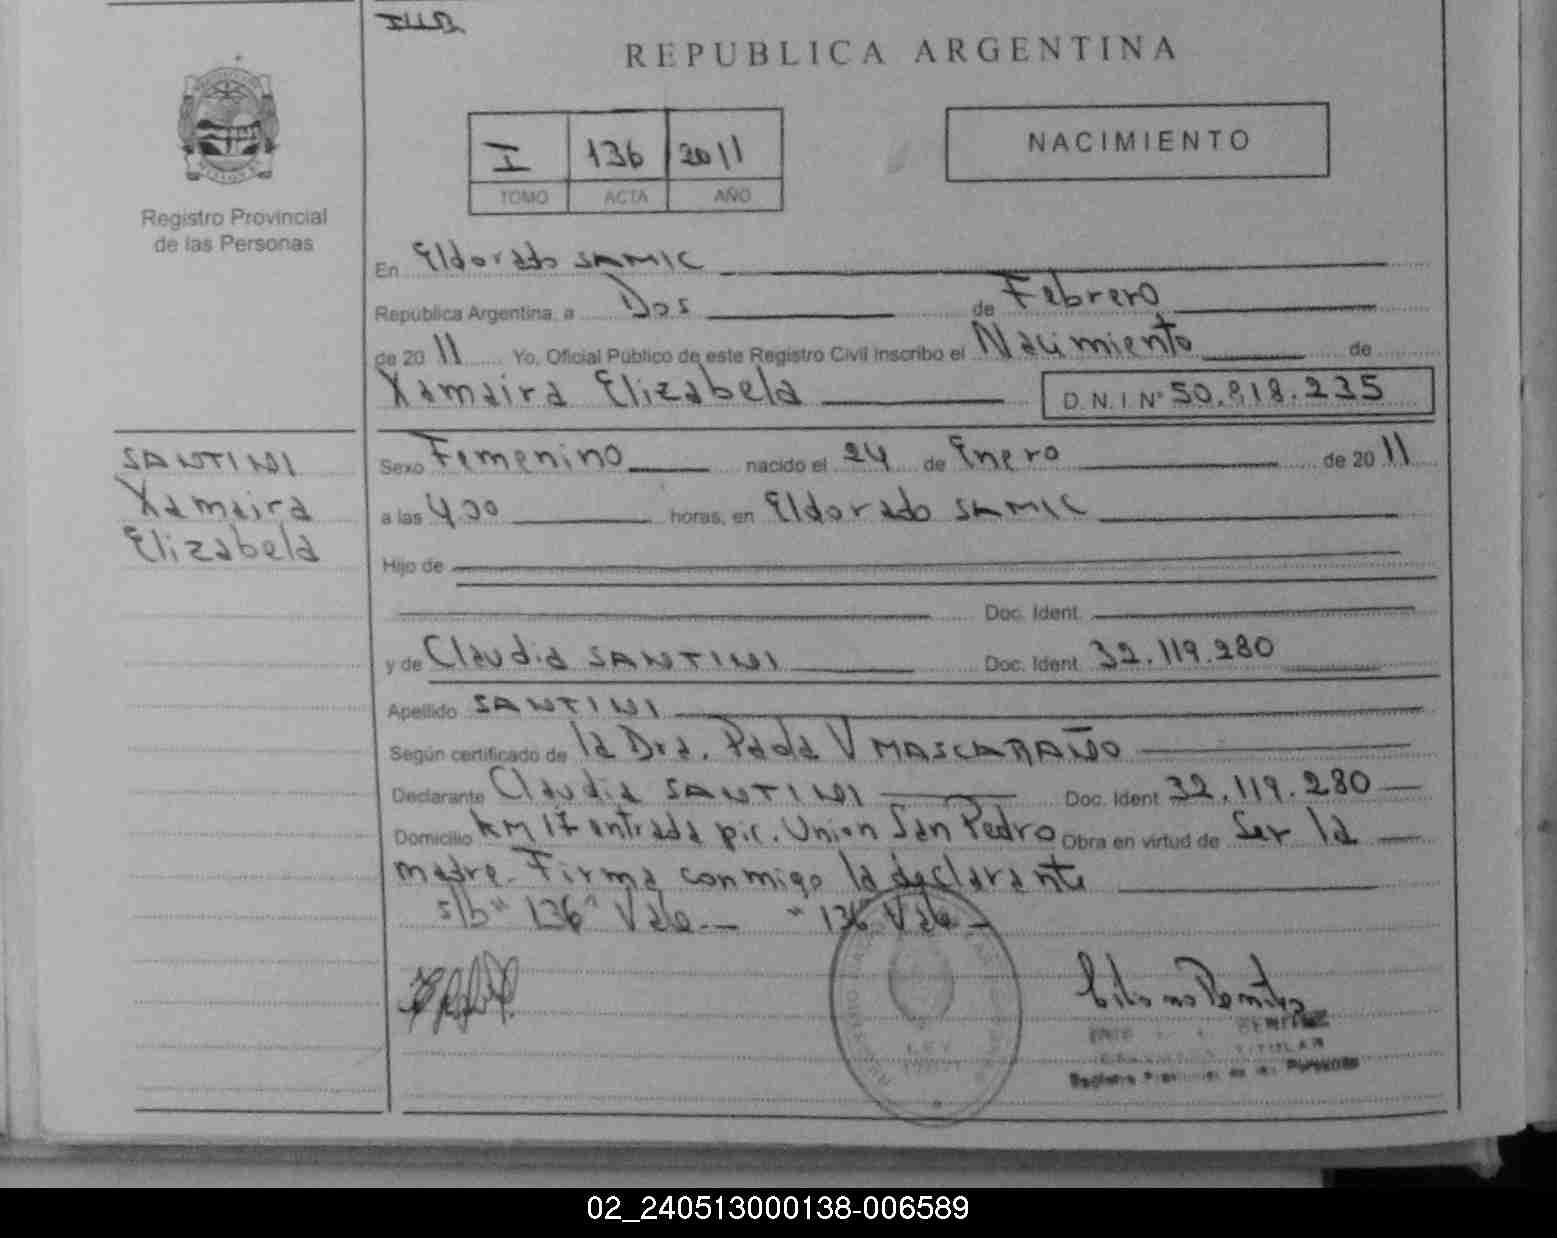 REPUBLICA ARGENTINA
I 136 2011
TOMO ACTA AÑO
NACIMIENTO
Registro Provincial
de las Personas
En Eldorado SAMIC
República Argentina, a Dos de Febrero
de 2011 Yo, Oficial Público de este Registro Civil inscribo el Nacimiento de
Xamaira Elizabela D.N.I. Nº 50.818.235
SANTINI
Xamaira
Elizabela
Sexo Femenino nacido el 24 de Enero de 2011
a las 4.30 horas, en Eldorado SAMIC
Hijo de
Doc. Ident.
y de Claudia SANTINI Doc. Ident. 32.119.280
Apellido SANTINI
Según certificado de la Dra. Paola V MASCARAÑO
Declarante Claudia SANTINI Doc. Ident. 32.119.280
Domicilio KM 17 entrada pic. Union San Pedro Obra en virtud de Ser la
madre. Firma conmigo la declarante
s/b "136" Vale.— "136" Vale—
BENITEZ
TITULAR
Registro Provincial de las Personas
02_240513000138-006589